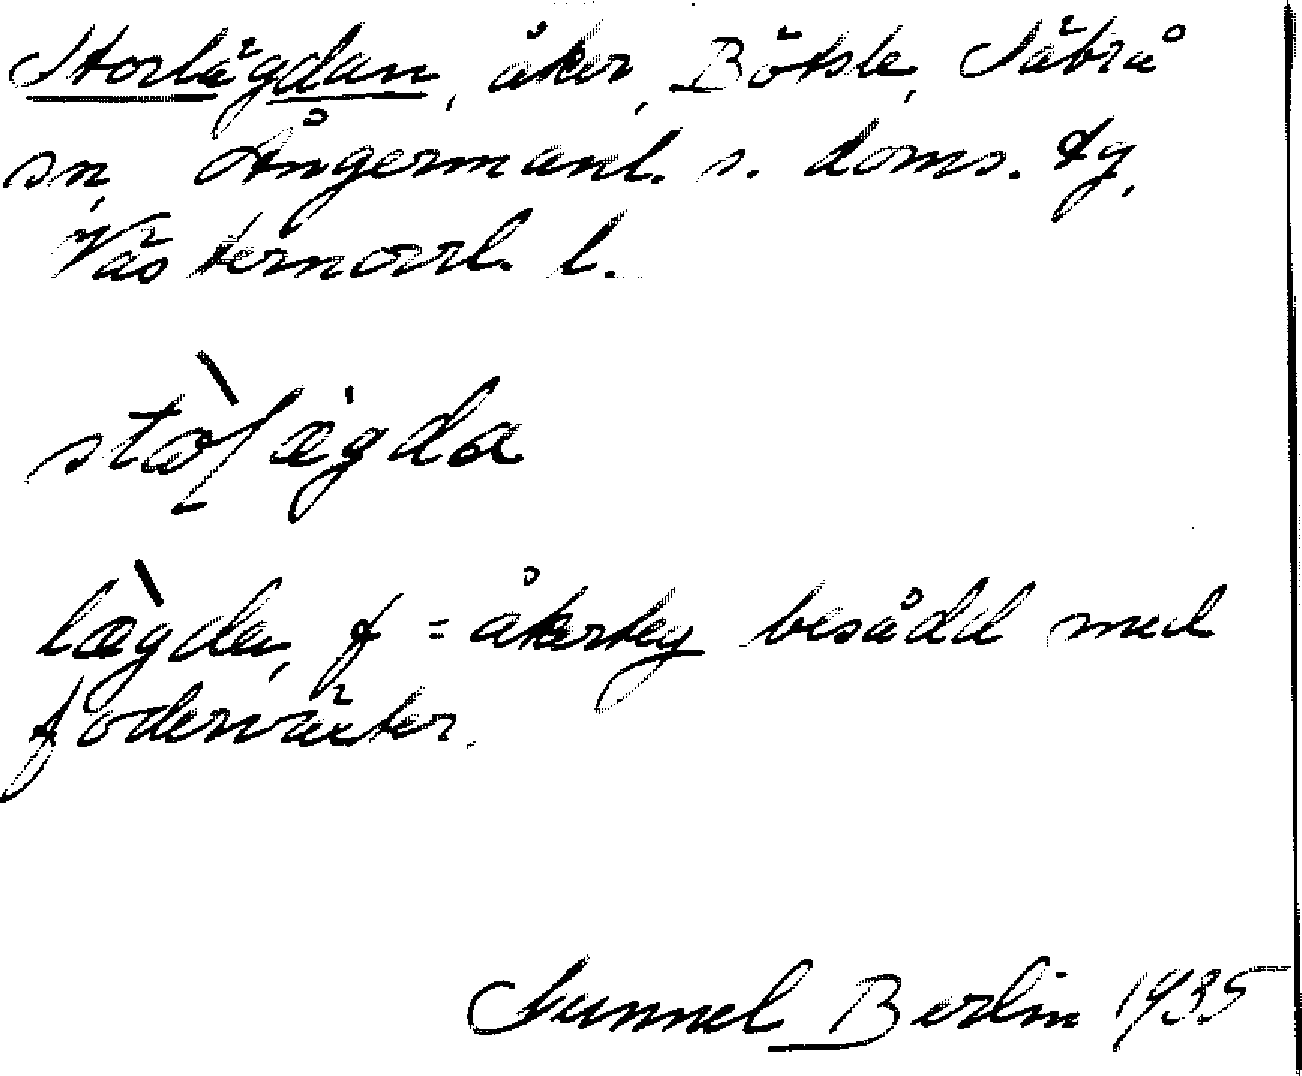 Storlägdan, åker, Bötsle, Säbrå
sn, Ångermanl. s. doms. tg,
Västernorrl. l.
lægda, f = åkerteg besådd med
foderväxter.
Sunnel Berlin 1935